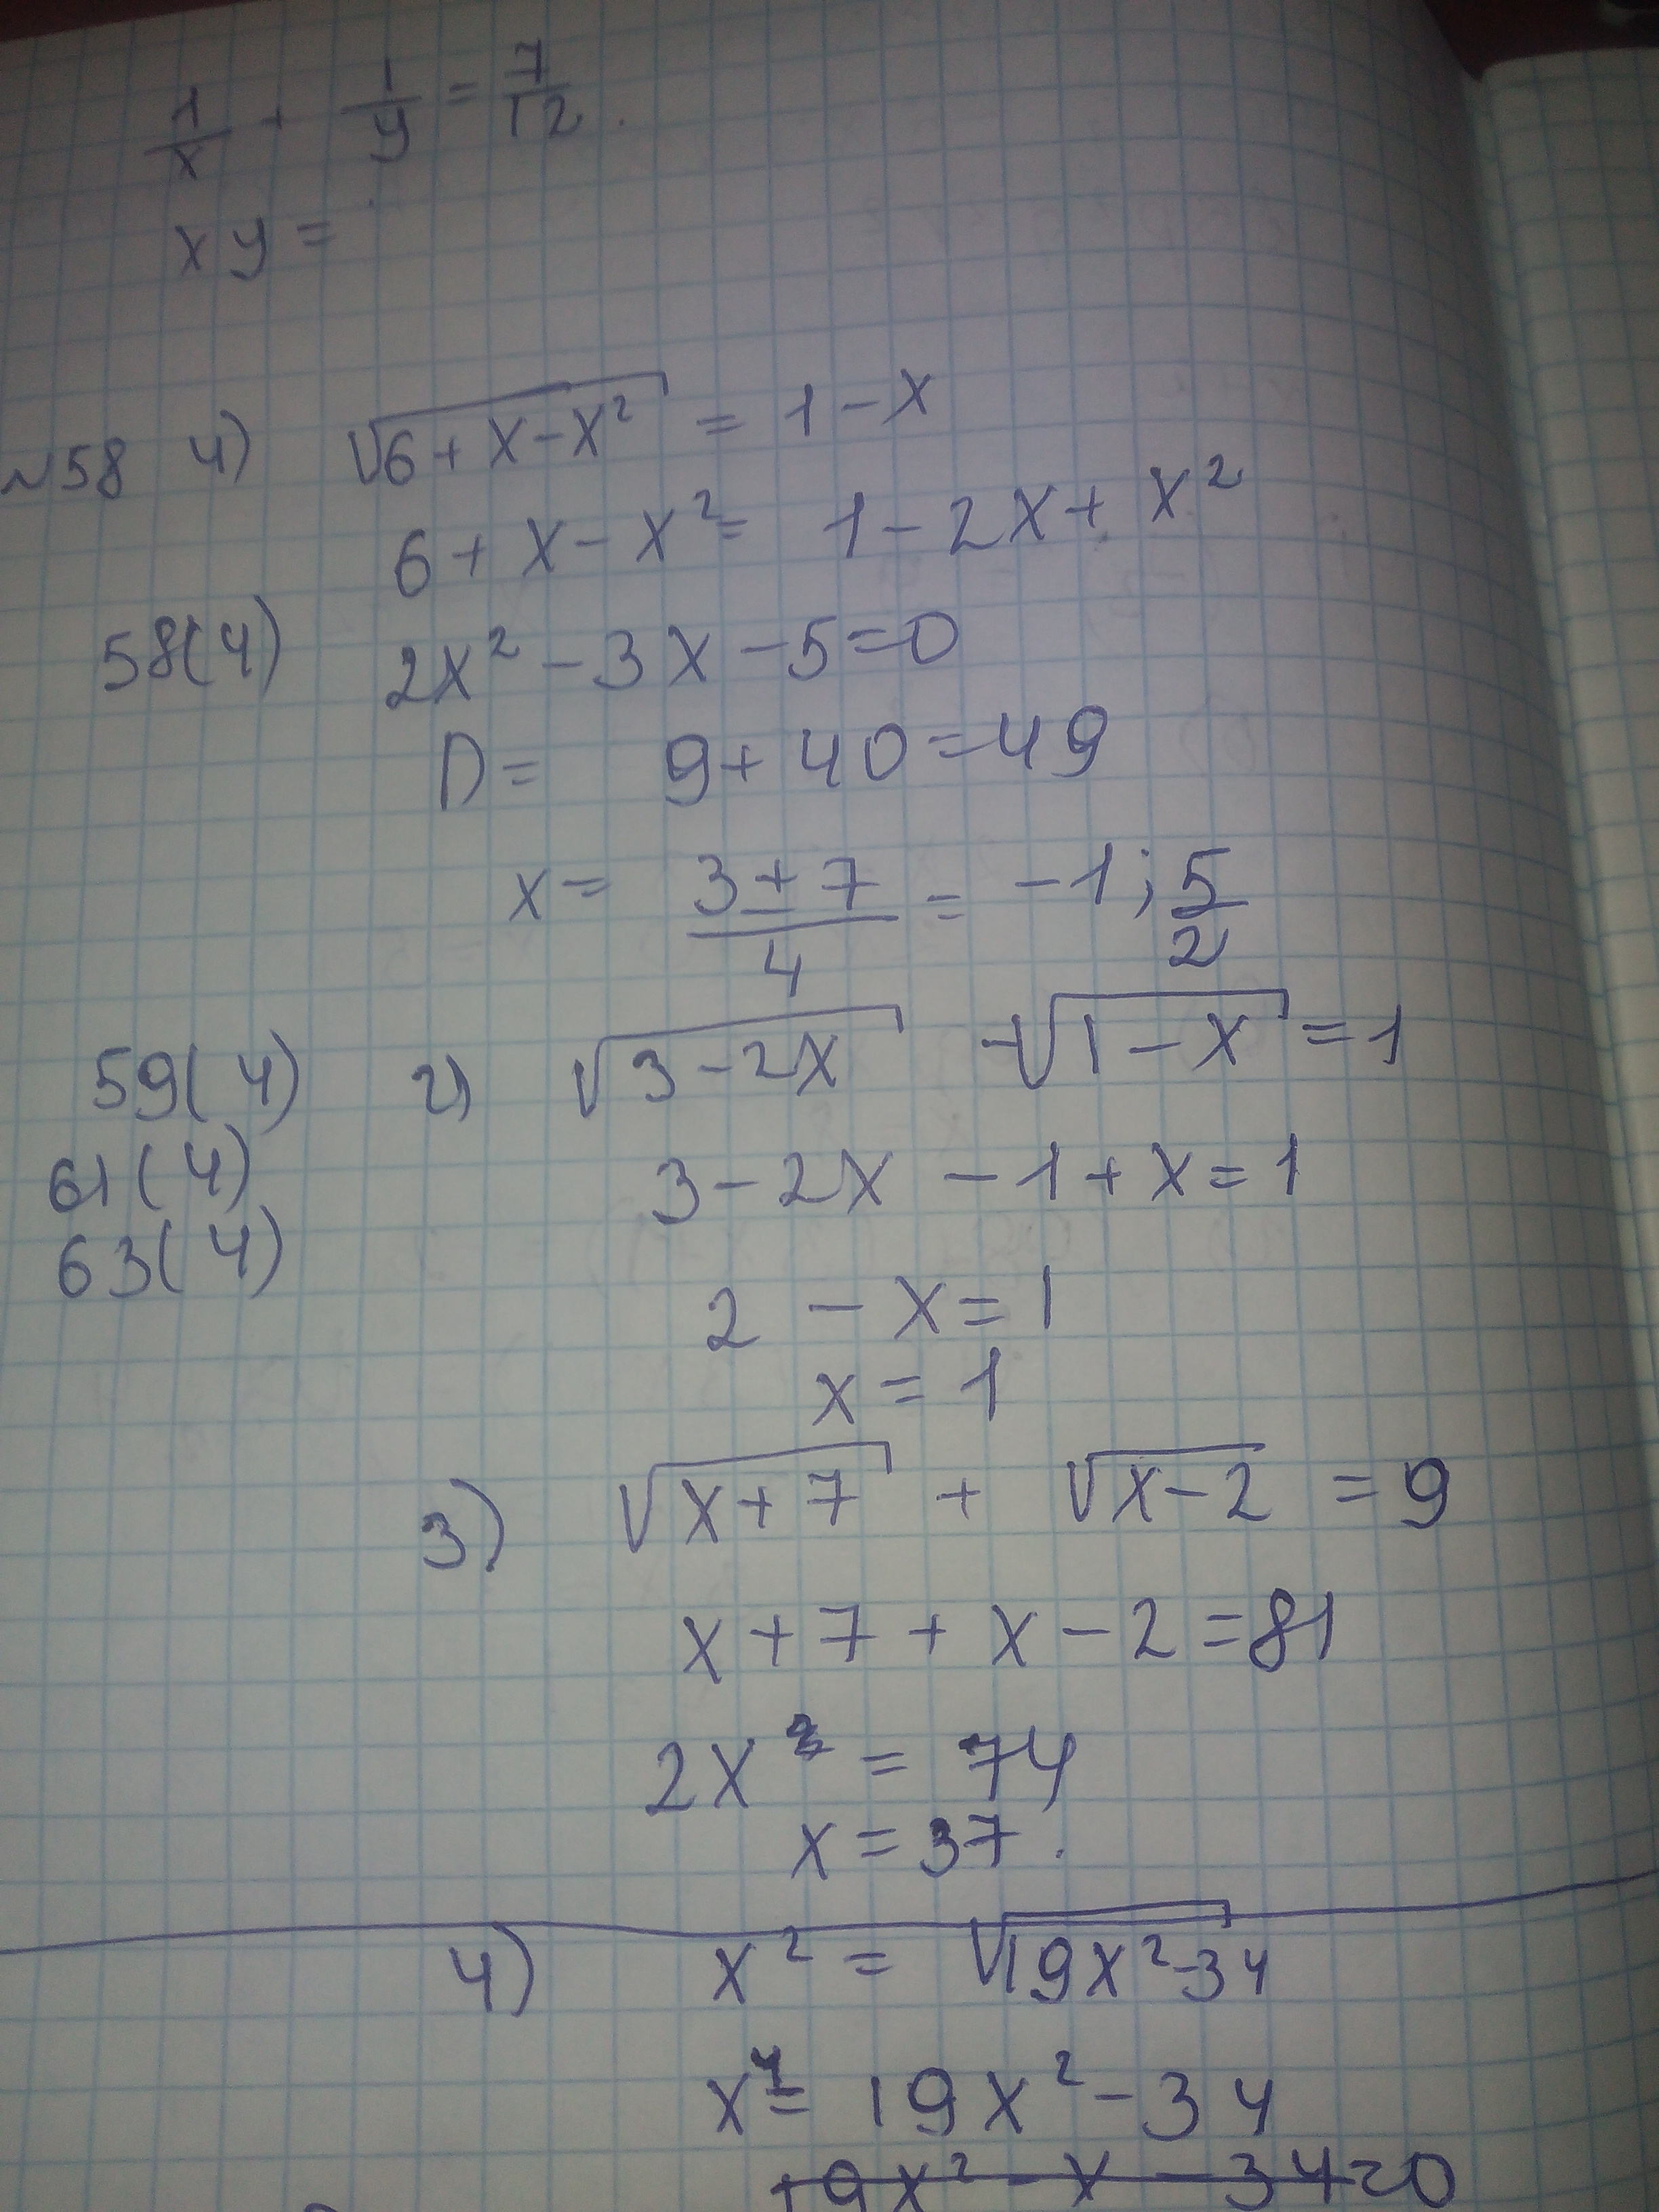 1/x + 1/y = 7/12.
xy =
№58 4) √(6+x-x²) = 1-x
6+x-x² = 1-2x+x²
58(4) 2x²-3x-5=0
D= 9+40=49
x= (3±7)/4 = -1; 5/2
59(4) 2) √(3-2x) -√(1-x) =1
61(4) 3-2x -1+x=1
63(4)
2 -x=1
x=1
3) √(x+7) + √(x-2) =9
x+7+x-2=81
2x = 74
x=37.
4) x² = √(19x²-34)
x⁴= 19x²-34
19x²-x-34=0